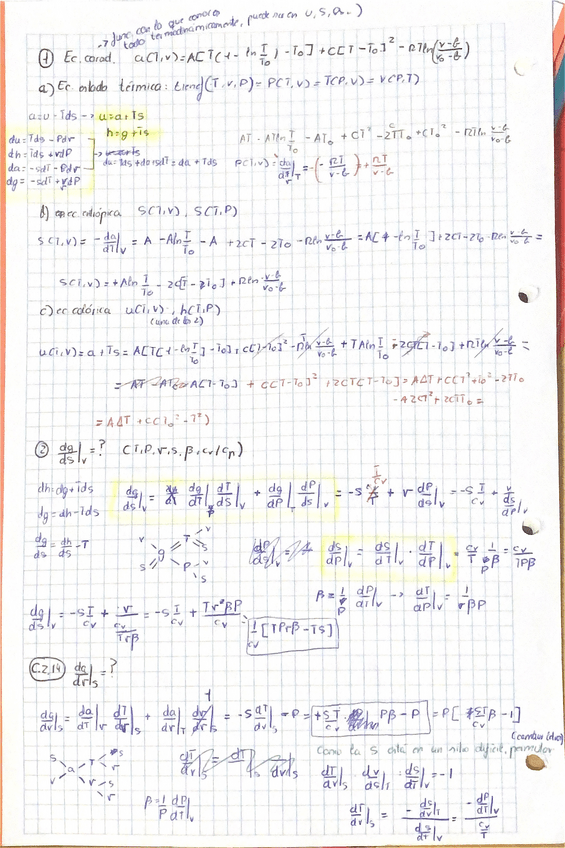 func. con lo que conoces
todo termodinámicamente, pueden ser u, s, a...)
① Ec. carad. a(T,v)=A[T(1-ln T/T₀)-T₀]+C[T-T₀]²-RTln(v-b/v₀-b)
a) Ec. estado térmica: (T,v,P)=P(T,v)=T(P,v)=v(P,T)
a=u-Tds → u=a+Ts
h=g+Ts
du=Tds-Pdv
dh=Tds+vdP
da=-sdT-Pdv
dg=-sdT+vdP
du=Tds+da+sdT=da+Tds
AT-ATln T/T₀-AT₀+CT²-2TT₀+CT₀²-RTln v-b/v₀-b
P(T,v)=-da/dv|T=-(-RT/v-b)=+RT/v-b
b) ec entrópica S(T,v), S(T,P)
S(T,v)=-da/dT|v=A-Aln T/T₀-A+2CT-2T₀-Rln v-b/v₀-b=A[1-ln T/T₀]+2CT-2T₀-Rln v-b/v₀-b=
S(T,v)=+Aln T/T₀-2C[T-2T₀]+Rln v-b/v₀-b
c) ec calórica u(T,v), h(T,P)
(una de las 2)
u(T,v)=a+Ts=A[T[1-ln T/T₀]-T₀]+C[T-T₀]²-RTln v-b/v₀-b+TAln T/T₀-2CT[T-T₀]+RTln v-b/v₀-b=
=A[T-T₀]+C[T-T₀]²+2CT[T-T₀]=AΔT+CCT²+T₀²-2TT₀
-2CT²+2CTT₀=
=AΔT+C(T₀²-T²)
② dg/ds|v=? (T,P,v,s,β,cv/cp)
dh=dg+Tds
dg=dh-Tds
dg/ds=dh/ds-T
dg/ds|v=dg/dT|P dT/ds|v+dg/dP|T dP/ds|v=-s T/cv+v dP/ds|v=-s T/cv+v/ds/dP|v
ds/dP|v=ds/dT|v·dT/dP|v=cv/T 1/βP=cv/TPβ
β=1/P dP/dT|v → dT/dP|v=1/βP
dg/ds|v=-s T/cv+v/cv/TPβ=-s T/cv+TvβP/cv=1/cv[TPvβ-Ts]
C.2.14 da/dv|s=?
da/dv|s=da/dT|v dT/dv|s+da/dv|T dv/dv|s=-s dT/dv|s-P=+sT/cv Pβ-P=P[sT/cv β-1]
como la s está en un sitio difícil, permutar
dT/dv|s·dv/ds|T·ds/dT|v=-1
β=1/P dP/dT|v
dT/dv|s=-ds/dv|T/ds/dT|v=-dP/dT|v/cv/T